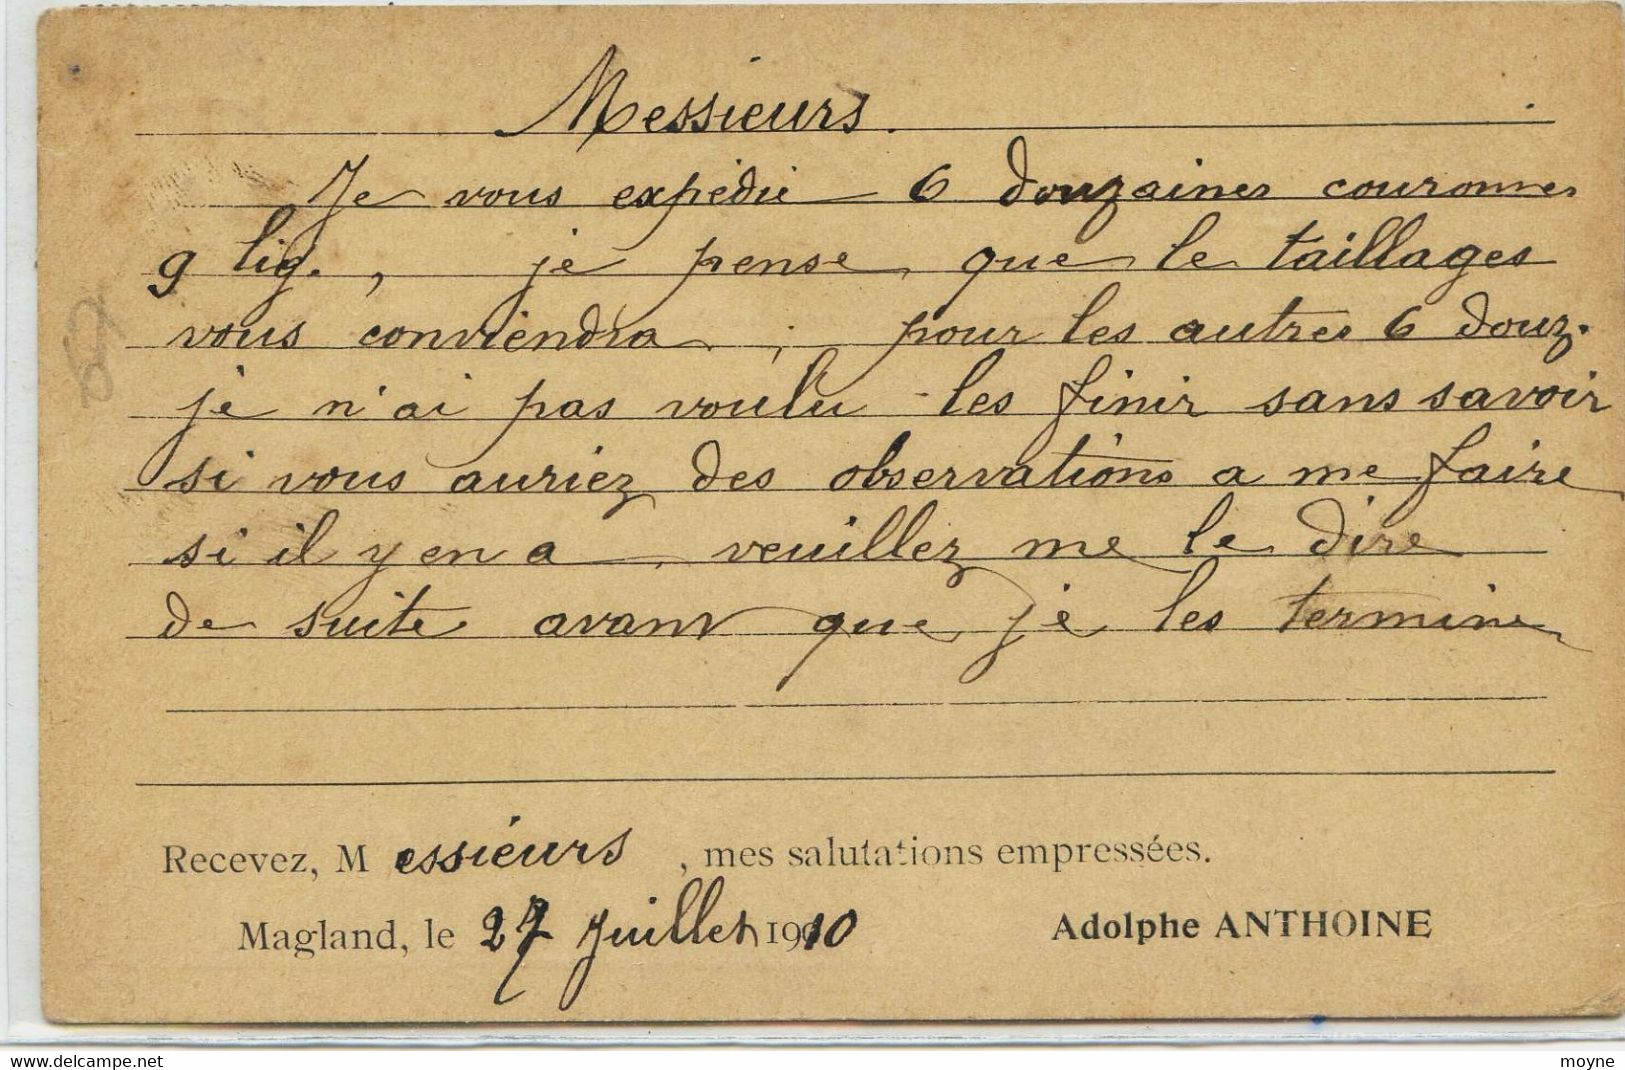 Messieurs.
Je vous expédie 6 douzaines couronnes
9 lig., je pense que le taillages
vous conviendra, pour les autres 6 douz.
je n'ai pas voulu les finir sans savoir
si vous auriez des observations a me faire
si il y en a veuillez me le dire
de suite avant que je les termine
Recevez, Messieurs, mes salutations empressées.
Magland, le 27 Juillet 1910 Adolphe ANTHOINE
delcampe.net moyne